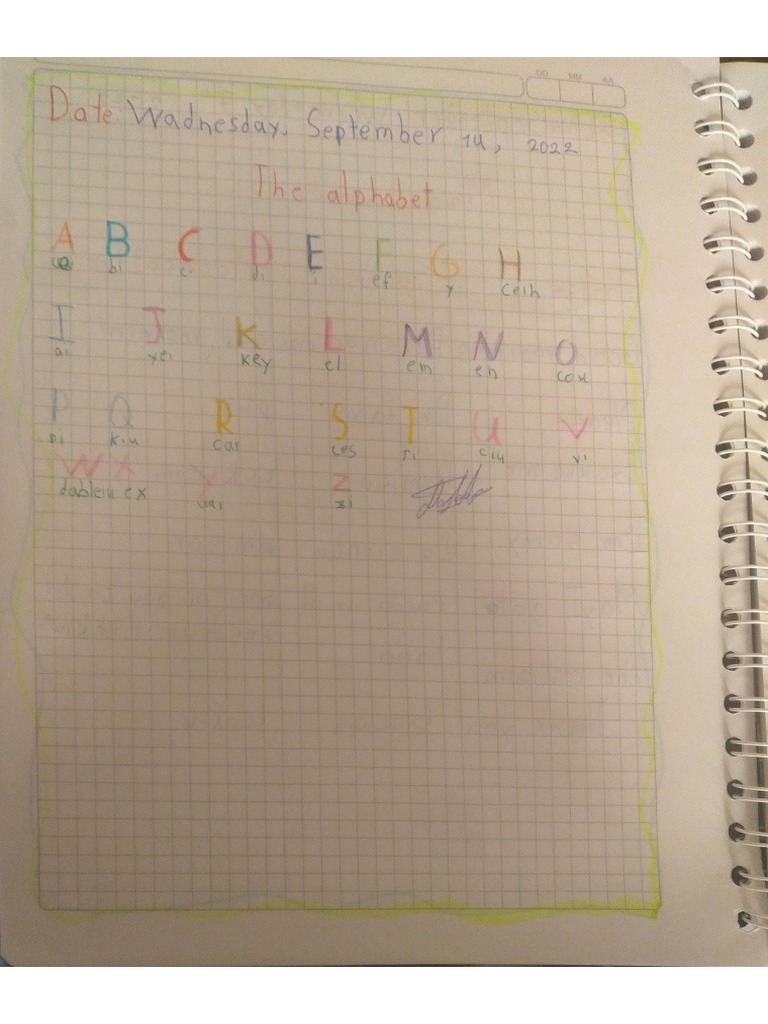 DD MM AA
Date: Wadnesday, September 14, 2022
The alphabet
A B C D E F G H
bi ci di i ef y ceih
I J K L M N O
ai yei key el em en
P Q R S T U V
pi kiu car ces ti ciu vi
W X Y Z
dableiu ex uai zi